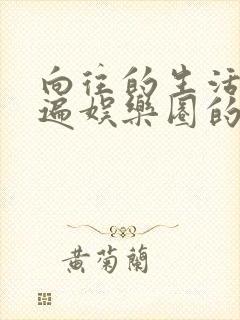 向往的生活
遍娱樂圈的
黄菊蘭